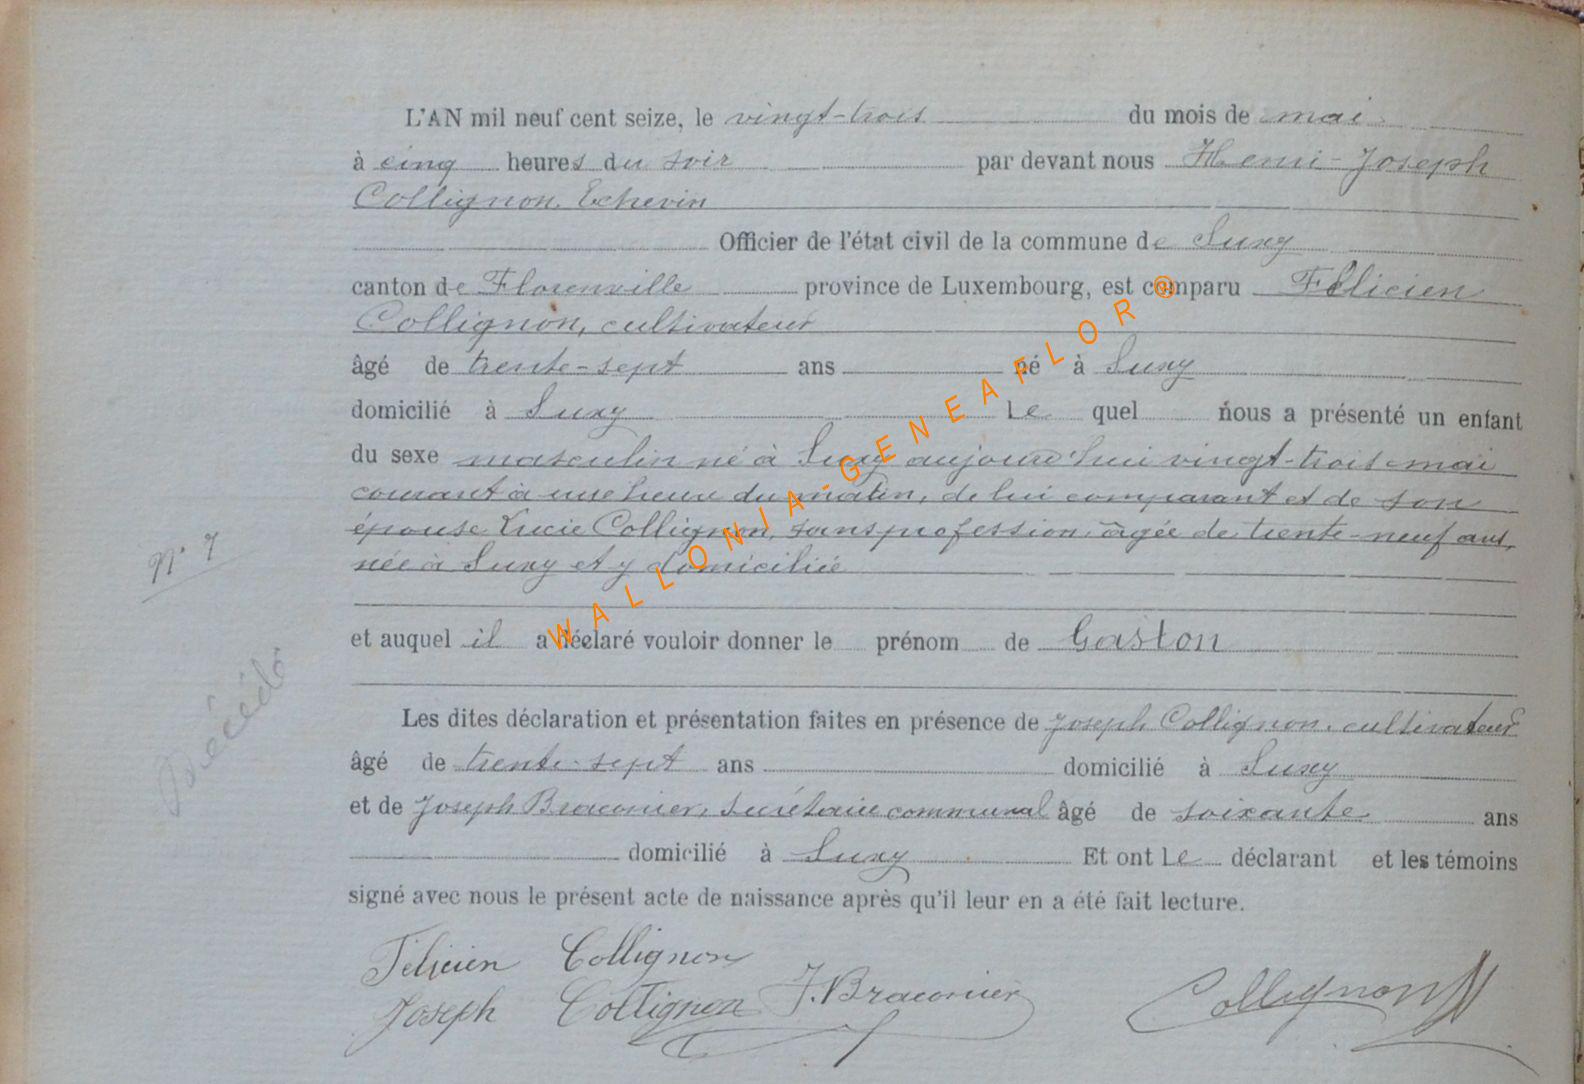 L'AN mil neuf cent seize, le vingt-trois du mois de mai
à cinq heures du soir par devant nous Henri-Joseph
Collignon, Echevin
Officier de l'état civil de la commune de Suxy
canton de Florenville province de Luxembourg, est comparu Félicien
Collignon, cultivateur
âgé de trente-sept ans né à Suxy
domicilié à Suxy Le quel nous a présenté un enfant
du sexe masculin né à Suxy aujourd'hui vingt-trois mai
courant à une heure du matin, de lui comparant et de son
épouse Lucie Collignon, sans profession, âgée de trente-neuf ans,
née à Suxy et y domiciliée
N° 7
et auquel il a déclaré vouloir donner le prénom de Gaston
Décédé
Les dites déclaration et présentation faites en présence de Joseph Collignon, cultivateur
âgé de trente-sept ans domicilié à Suxy
et de Joseph Braconier, secrétaire communal âgé de soixante ans
domicilié à Suxy Et ont Le déclarant et les témoins
signé avec nous le présent acte de naissance après qu'il leur en a été fait lecture.
Félicien Collignon
Joseph Collignon J. Braconier Collignon
WALLONIA-GENEAFLOR ®